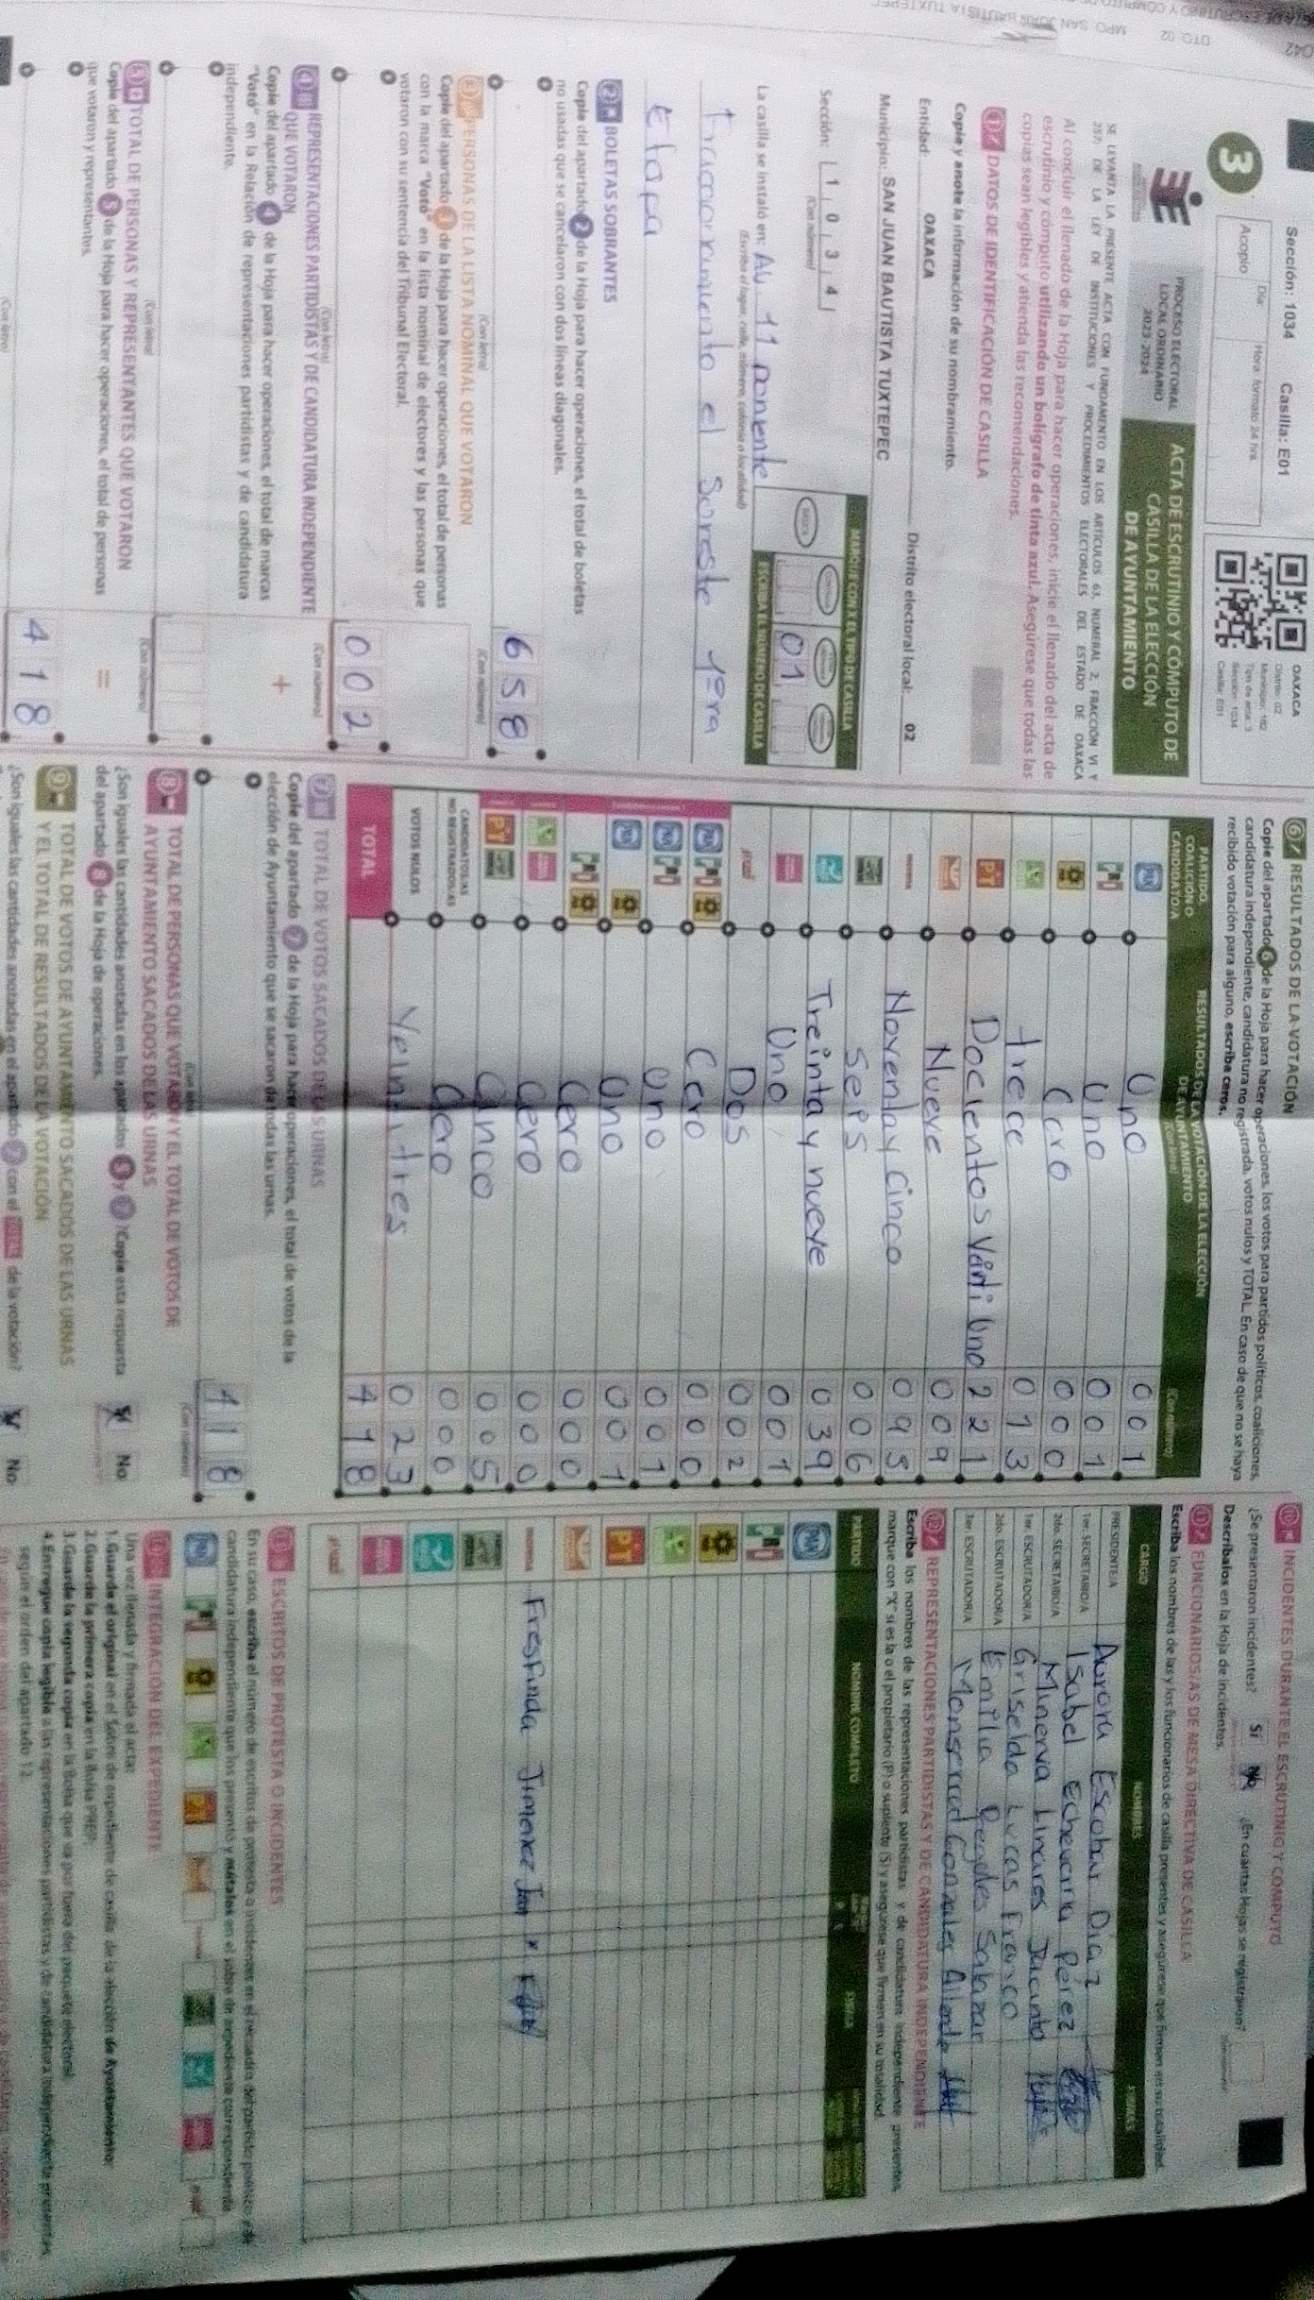 Sección: 1034 Casilla: E01
Día: Hora: formato 24 hrs.
Acopio
3
OAXACA
Distrito: 02
Municipio: 182
Tipo de acta: 3
Sección: 1034
Casilla: E01
PROCESO ELECTORAL
LOCAL ORDINARIO
2023-2024
ACTA DE ESCRUTINIO Y CÓMPUTO DE
CASILLA DE LA ELECCIÓN
DE AYUNTAMIENTO
SE LEVANTA LA PRESENTE ACTA CON FUNDAMENTO EN LOS ARTÍCULOS 63, NUMERAL 2, FRACCIÓN VI Y
257, DE LA LEY DE INSTITUCIONES Y PROCEDIMIENTOS ELECTORALES DEL ESTADO DE OAXACA
Al concluir el llenado de la Hoja para hacer operaciones, inicie el llenado del acta de
escrutinio y cómputo utilizando un bolígrafo de tinta azul. Asegúrese que todas las
copias sean legibles y atienda las recomendaciones.
1 DATOS DE IDENTIFICACIÓN DE CASILLA
Copie y anote la información de su nombramiento.
Entidad: OAXACA Distrito electoral local: 02
Municipio: SAN JUAN BAUTISTA TUXTEPEC
Sección: 1 0 3 4
(Con número)
MARQUE CON X EL TIPO DE CASILLA
01
ESCRIBA EL NÚMERO DE CASILLA
La casilla se instaló en: Av. 11 poniente
(Escriba el lugar, calle, número, colonia o localidad)
fraccionamiento el Sureste 1era
Etapa
2 BOLETAS SOBRANTES
Copie del apartado 2 de la Hoja para hacer operaciones, el total de boletas
no usadas que se cancelaron con dos líneas diagonales.
658
(Con letra) (Con número)
3 PERSONAS DE LA LISTA NOMINAL QUE VOTARON
Copie del apartado 3 de la Hoja para hacer operaciones, el total de personas
con la marca "Votó" en la lista nominal de electores y las personas que
votaron con su sentencia del Tribunal Electoral.
002
(Con letra) (Con número)
4 REPRESENTACIONES PARTIDISTAS Y DE CANDIDATURA INDEPENDIENTE
QUE VOTARON +
Copie del apartado 4 de la Hoja para hacer operaciones, el total de marcas
"Votó" en la Relación de representaciones partidistas y de candidatura
independiente.
(Con letra) (Con número)
5 TOTAL DE PERSONAS Y REPRESENTANTES QUE VOTARON
Copie del apartado 5 de la Hoja para hacer operaciones, el total de personas =
que votaron y representantes.
418
6 RESULTADOS DE LA VOTACIÓN
Copie del apartado 6 de la Hoja para hacer operaciones, los votos para partidos políticos, coaliciones,
candidatura independiente, candidatura no registrada, votos nulos y TOTAL. En caso de que no se haya
recibido votación para alguno, escriba ceros.
PARTIDO, COALICIÓN O CANDIDATO/A
RESULTADOS DE LA VOTACIÓN DE LA ELECCIÓN
DE AYUNTAMIENTO
(Con letra) (Con número)
PAN Uno 001
PRI Uno 001
PRD Cero 000
VERDE trece 013
PT Docientos Veinti Uno 221
Nueve 009
morena Noventay Cinco 095
Seis 006
Treinta y nueve 039
Uno 001
Dos 002
PAN PRI PRD Cero 000
PAN PRI Uno 001
PAN PRD Uno 001
PRI PRD Cero 000
Cero 000
PT Cinco 005
CANDIDATOS/AS
NO REGISTRADOS/AS Cero 000
VOTOS NULOS Veintitres 023
TOTAL 418
7 TOTAL DE VOTOS SACADOS DE LAS URNAS
Copie del apartado 7 de la Hoja para hacer operaciones, el total de votos de la
elección de Ayuntamiento que se sacaron de todas las urnas.
418
(Con letra) (Con número)
8 TOTAL DE PERSONAS QUE VOTARON Y EL TOTAL DE VOTOS DE
AYUNTAMIENTO SACADOS DE LAS URNAS
¿Son iguales las cantidades anotadas en los apartados 5 y 7? Copie esta respuesta
del apartado 8 de la Hoja de operaciones. Sí No
9 TOTAL DE VOTOS DE AYUNTAMIENTO SACADOS DE LAS URNAS
Y EL TOTAL DE RESULTADOS DE LA VOTACIÓN
¿Son iguales las cantidades anotadas en el apartado 7 con el TOTAL de la votación? Sí No
10 INCIDENTES DURANTE EL ESCRUTINIO Y CÓMPUTO
¿Se presentaron incidentes? Sí No ¿En cuántas Hojas se registraron?
Descríbalos en la Hoja de incidentes.
11 FUNCIONARIOS/AS DE MESA DIRECTIVA DE CASILLA
Escriba los nombres de las y los funcionarios de casilla presentes y asegúrese que firmen en su totalidad.
CARGO NOMBRES FIRMAS
PRESIDENTE/A Aurora Escobar Díaz
1er. SECRETARIO/A Isabel Echevarria Pérez
2do. SECRETARIO/A Minerva Linares Jacinto
1er. ESCRUTADOR/A Griselda Lucas Franco
2do. ESCRUTADOR/A Emilia Regules Salazar
3er. ESCRUTADOR/A Monserrad Gonzales Allende
12 REPRESENTACIONES PARTIDISTAS Y DE CANDIDATURA INDEPENDIENTE
Escriba los nombres de las representaciones partidistas y de candidatura independiente presentes,
marque con "X" si es la o el propietario (P) o suplente (S) y asegúrese que firmen en su totalidad.
PARTIDO NOMBRE COMPLETO FIRMA
PAN
PRI
PRD
VERDE
PT
morena Fresfinda Jimenez Juan X
13 ESCRITOS DE PROTESTA O INCIDENTES
En su caso, escriba el número de escritos de protesta o incidentes en el recuadro del partido político y de
candidatura independiente que los presentó y métalos en el sobre de expediente correspondiente.
14 INTEGRACIÓN DEL EXPEDIENTE
Una vez llenada y firmada el acta:
1. Guarde el original en el Sobre de expediente de casilla de la elección de Ayuntamiento;
2. Guarde la primera copia en la Bolsa PREP;
3. Guarde la segunda copia en la Bolsa que va por fuera del paquete electoral
4. Entregue copia legible a las representaciones partidistas y de candidatura independiente presentes,
según el orden del apartado 12.